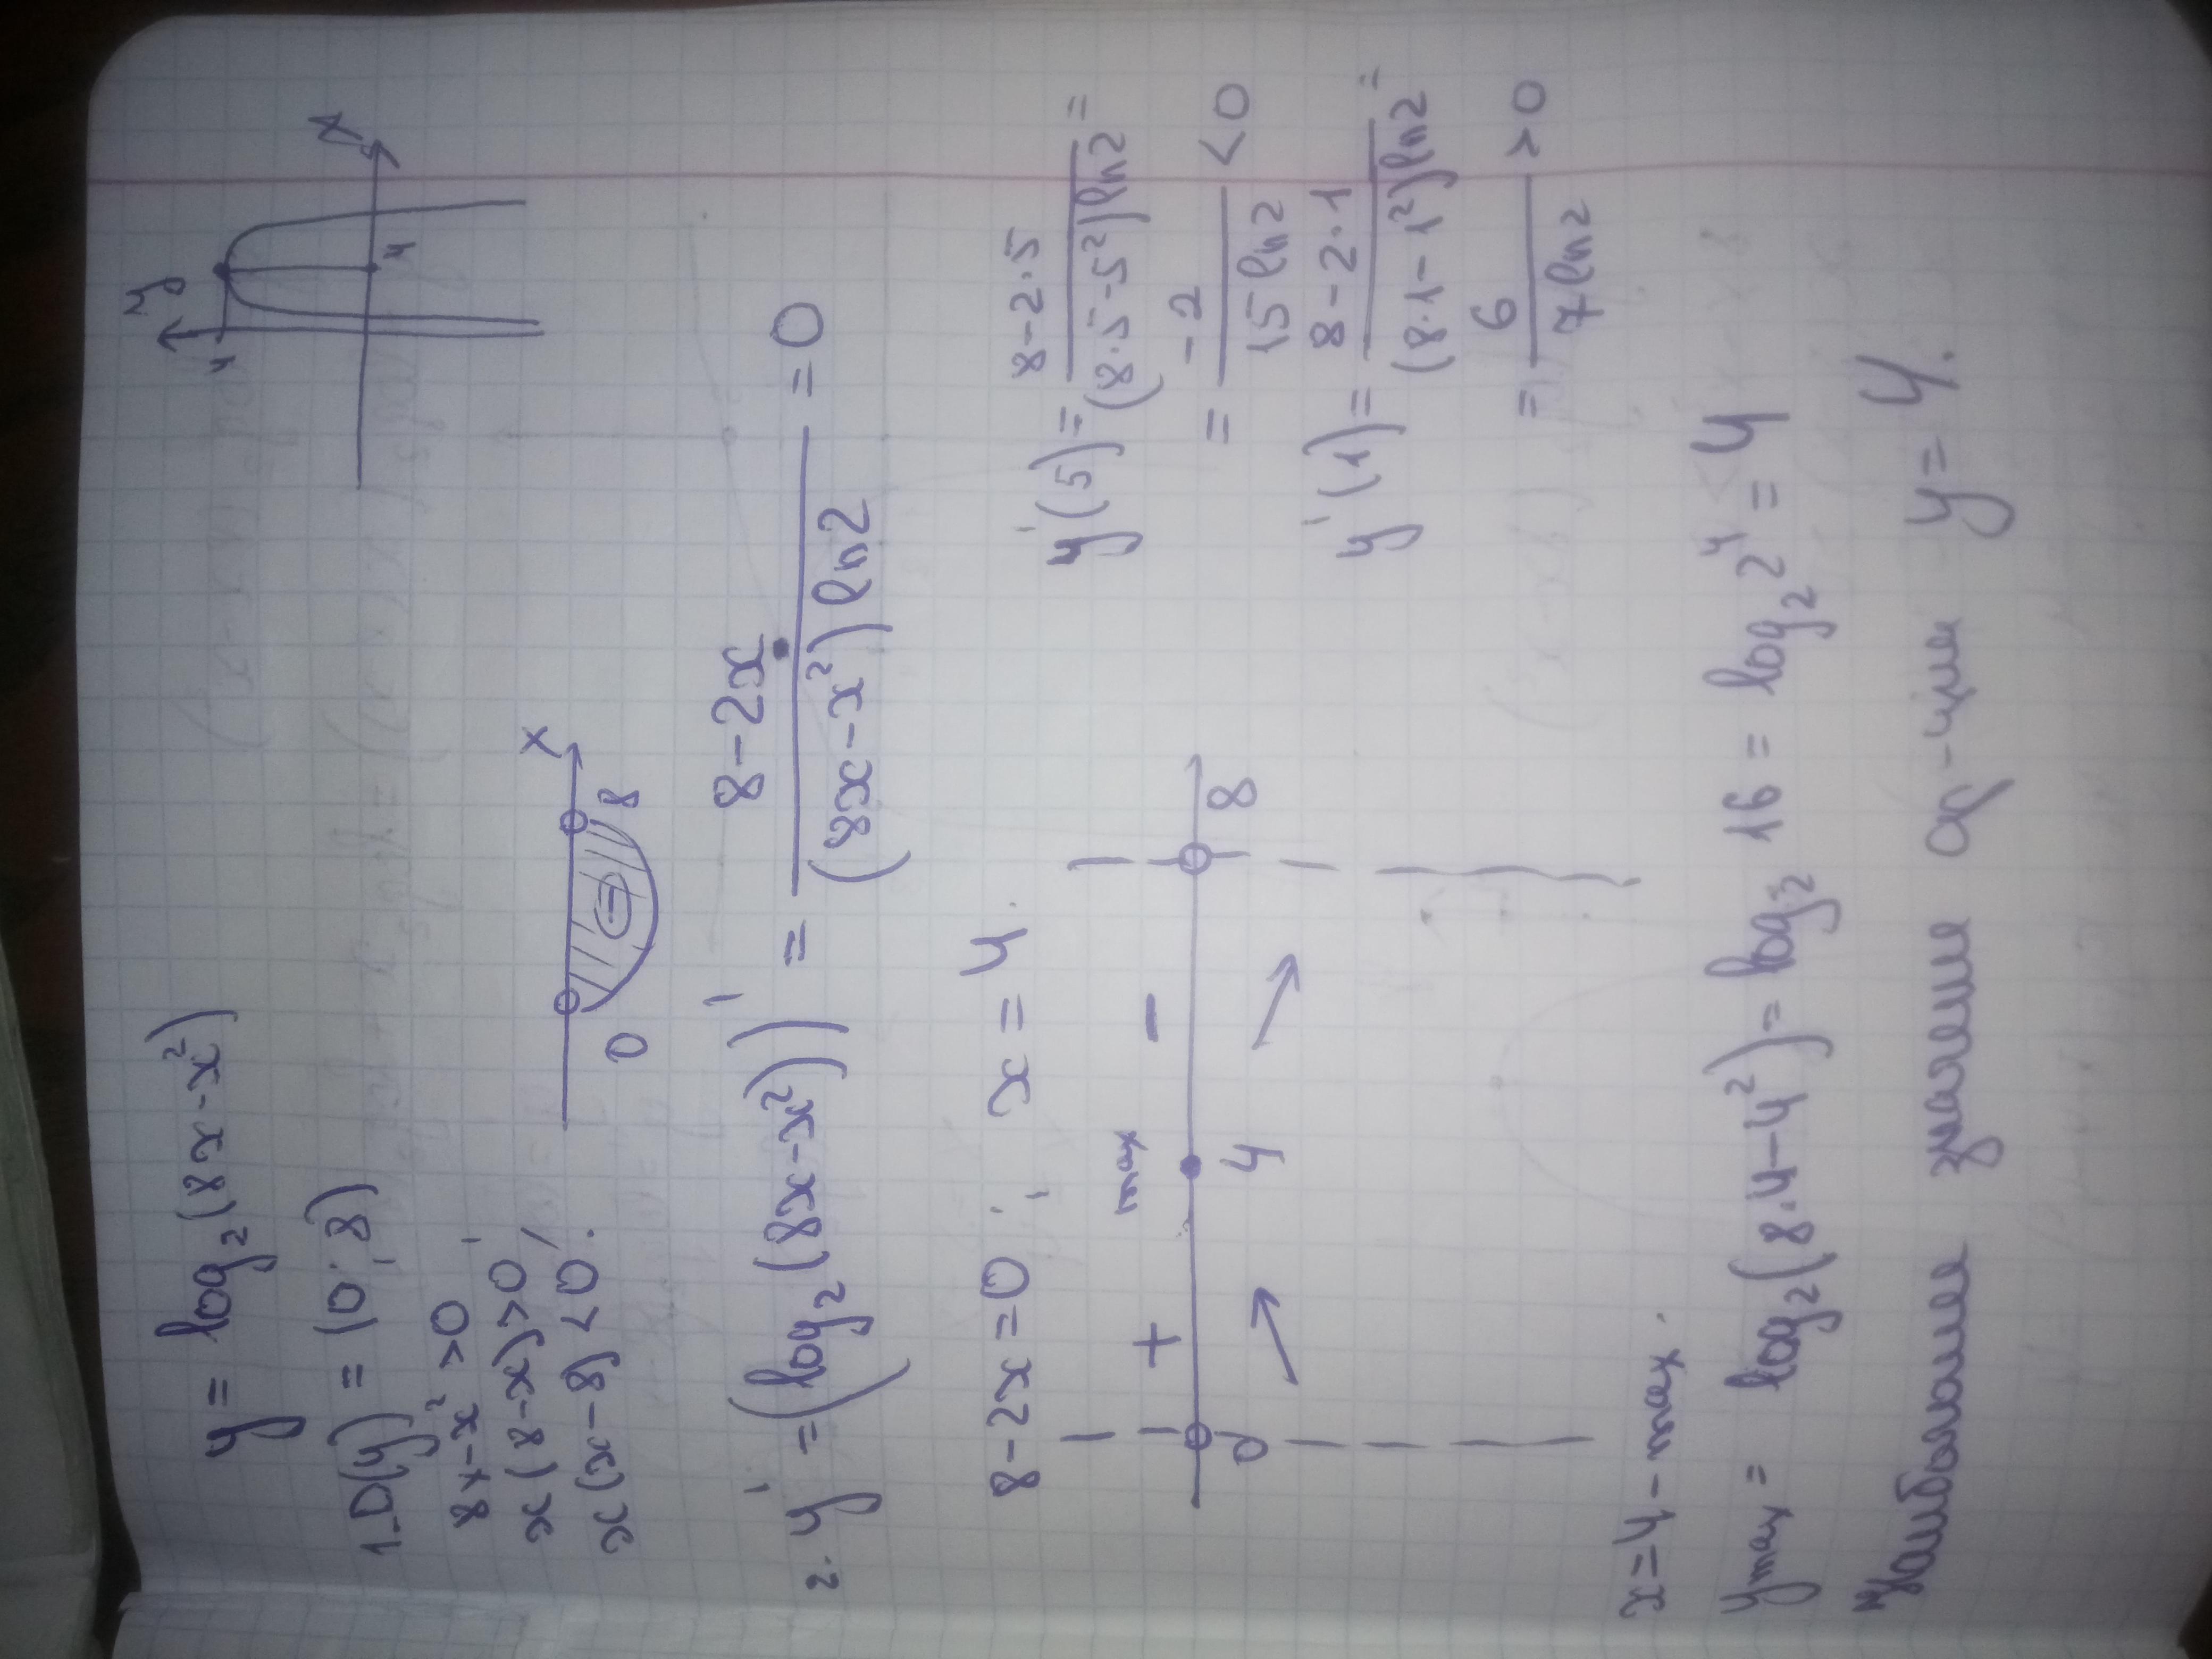 y = log₂(8x-x²)
y
4
4
x
1. D(y) = (0; 8)
8x-x²>0,
x(8-x)>0,
x(x-8)<0.
0
8
x
2. y' = (log₂(8x-x²))' = (8-2x)/((8x-x²)ln2) = 0
8-2x=0, x=4.
+
max
-
0
4
8
y'(5) = (8-2·5)/((8·5-5²)ln2) =
= -2/(15 ln2) < 0
y'(1) = (8-2·1)/((8·1-1²)ln2) =
= 6/(7 ln2) > 0
x=4 - max.
y max = log₂(8·4-4²) = log₂ 16 = log₂ 2⁴ = 4
Наибольшее значение ф-ции y = 4.